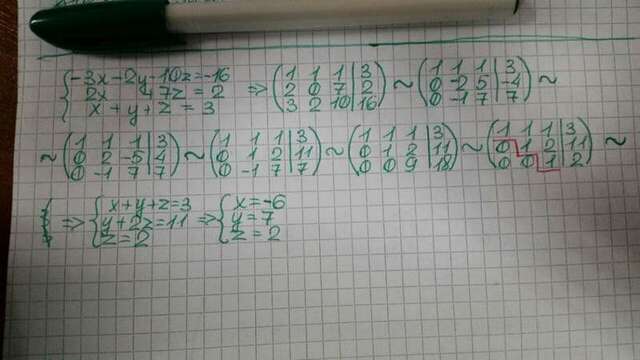 {-3x-2y-10z=-16 2x +7z=2 x+y+z=3 => (1 1 1|3 2 0 7|2 3 2 10|16) ~ (1 1 1|3 0 -2 5|-4 0 -1 7|7) ~
~ (1 1 1|3 0 2 -5|4 0 -1 7|7) ~ (1 1 1|3 0 1 2|11 0 -1 7|7) ~ (1 1 1|3 0 1 2|11 0 0 9|18) ~ (1 1 1|3 0 1 2|11 0 0 1|2) ~
=> {x+y+z=3 y+2z=11 z=2 => {x=-6 y=7 z=2